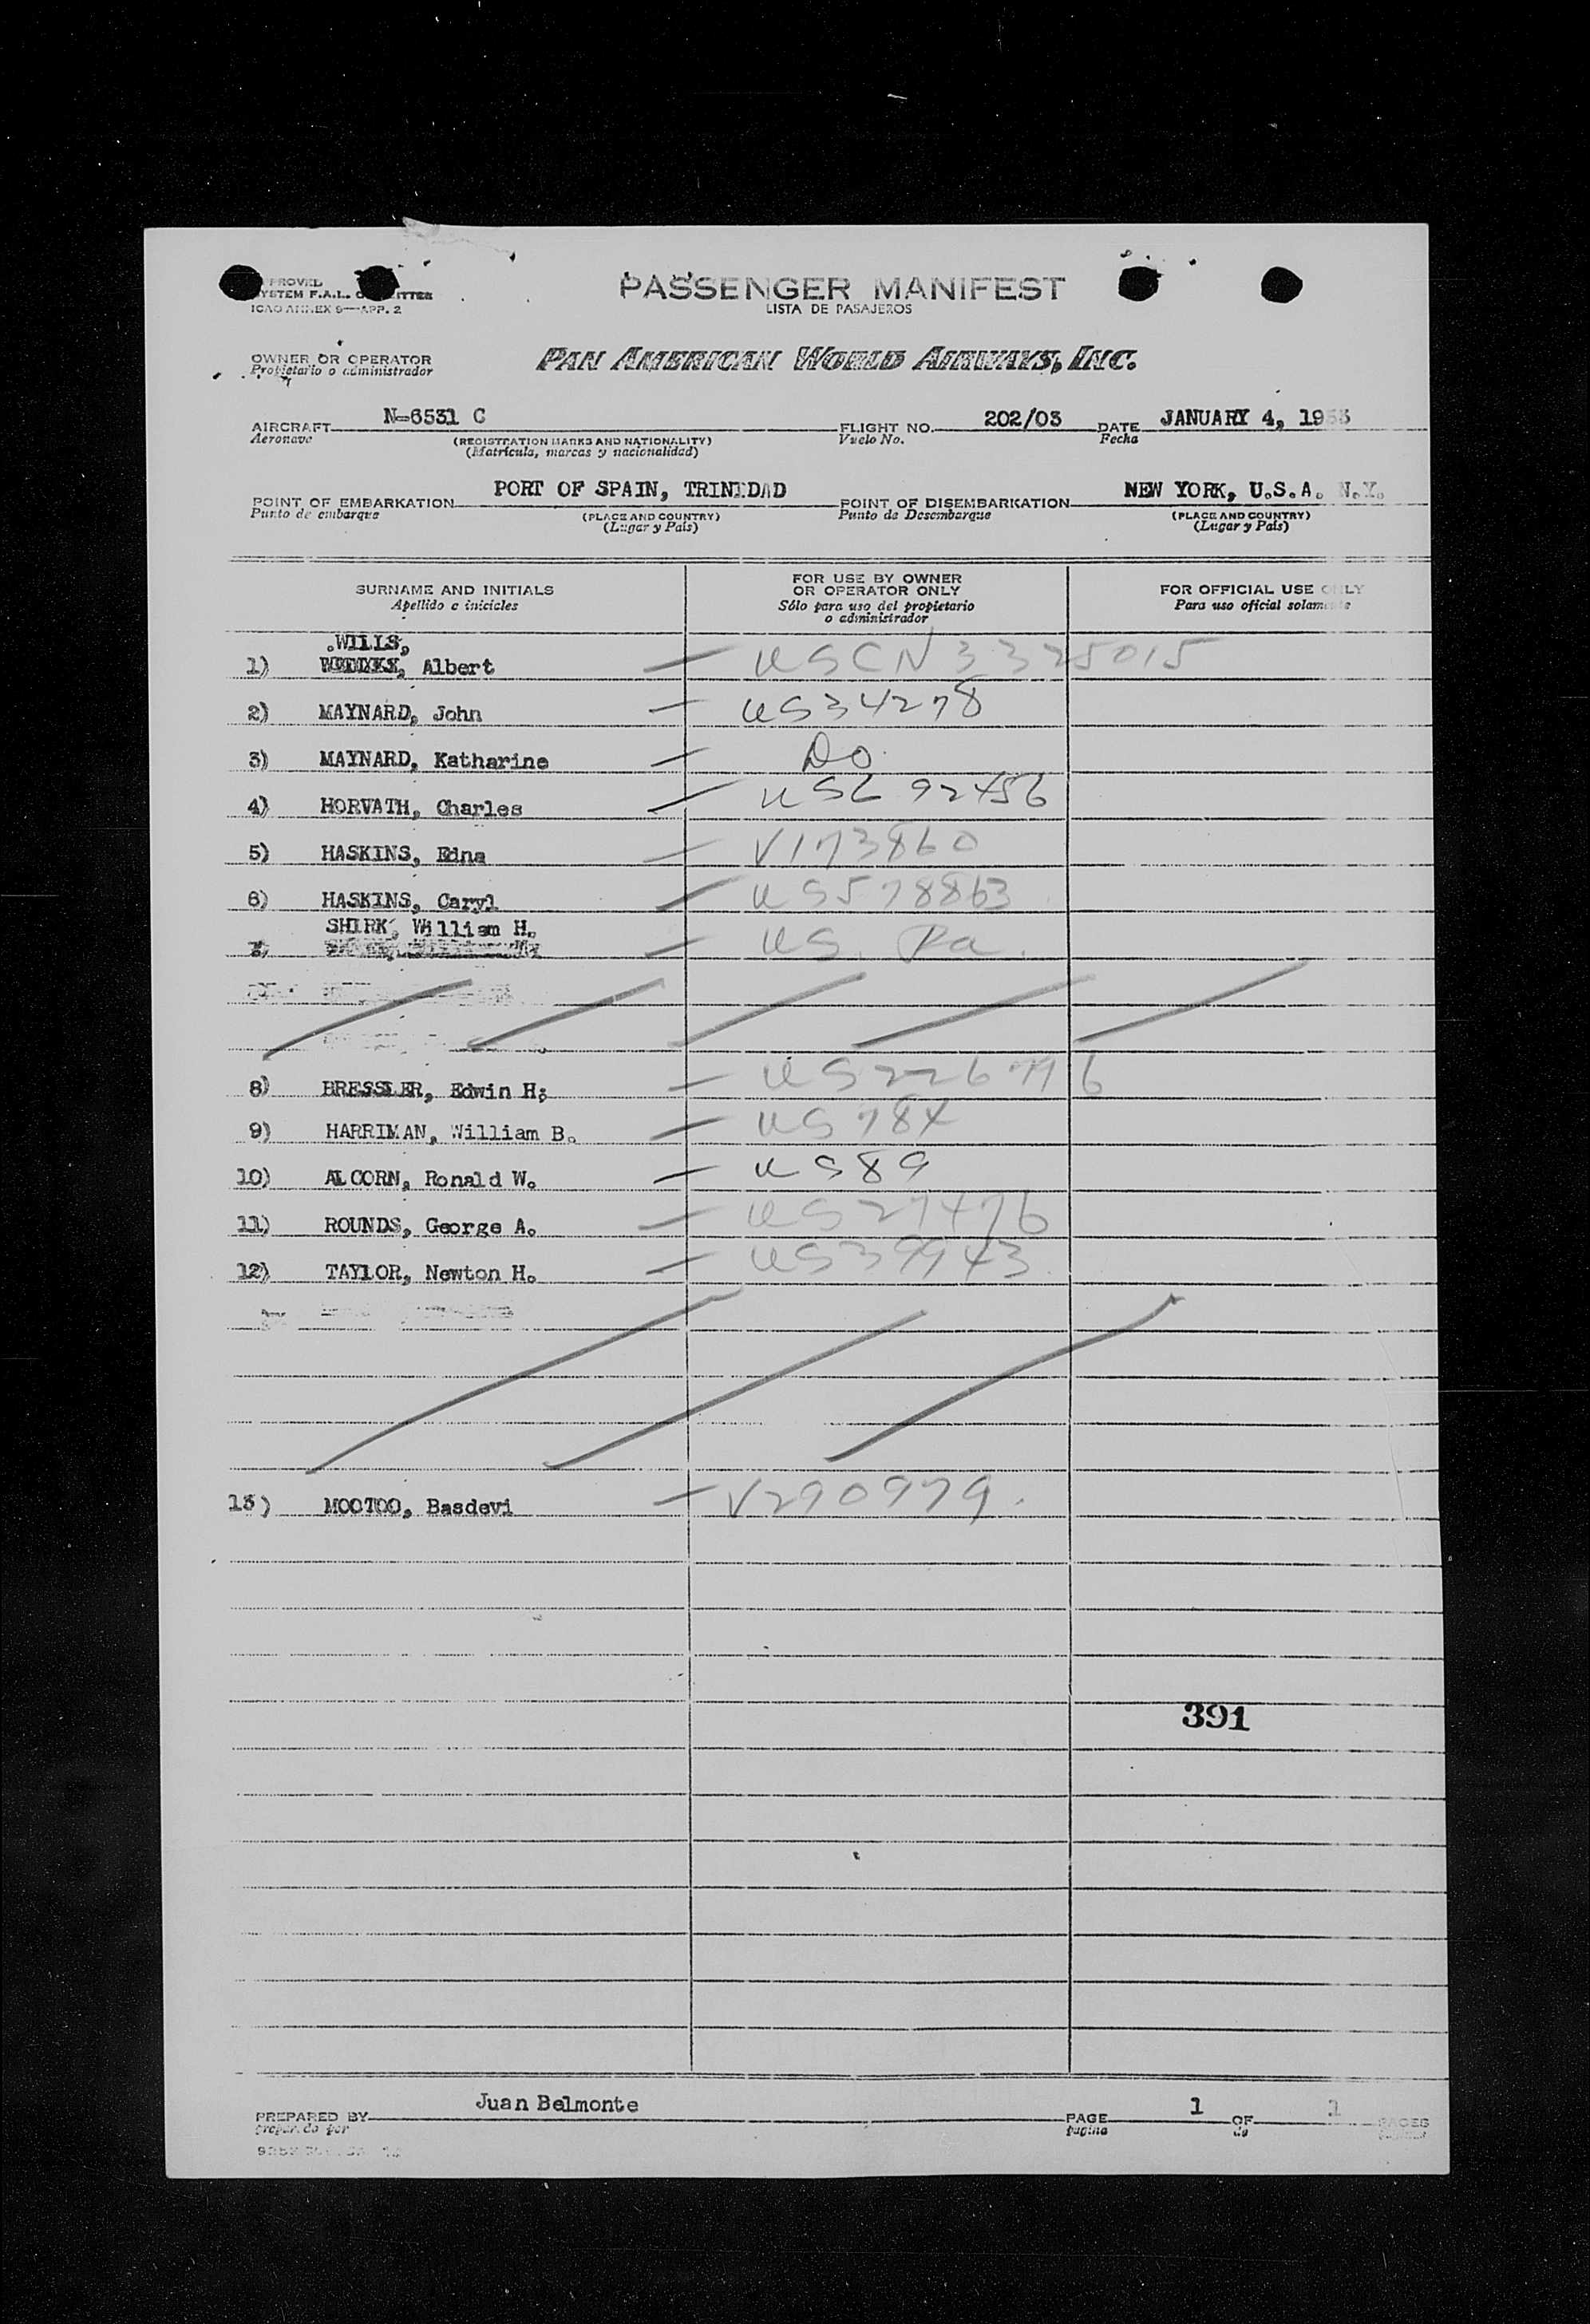 PASSENGER MANIFEST
LISTA DE PASAJEROS
SYSTEM F.A.L.
ICAO ANNEX 9—APP. 2
OWNER OR OPERATOR
Propietario o administrador
PAN AMERICAN WORLD AIRWAYS, INC.
AIRCRAFT N-6531 C FLIGHT NO. 202/03 DATE JANUARY 4, 1953
Aeronave (REGISTRATION MARKS AND NATIONALITY) Vuelo No. Fecha
(Matrícula, marcas y nacionalidad)
POINT OF EMBARKATION PORT OF SPAIN, TRINIDAD POINT OF DISEMBARKATION NEW YORK, U.S.A. N.Y.
Punto de embarque (PLACE AND COUNTRY) Punto de Desembarque (PLACE AND COUNTRY)
(Lugar y País) (Lugar y País)
SURNAME AND INITIALS FOR USE BY OWNER OR OPERATOR ONLY FOR OFFICIAL USE ONLY
Apellido e iniciales Sólo para uso del propietario o administrador Para uso oficial solamente
WILLS,
1) Albert — USCN 3325015
2) MAYNARD, John — US34278
3) MAYNARD, Katharine — Do
4) HORVATH, Charles — US 92456
5) HASKINS, Edna — V173860
6) HASKINS, Caryl — US578863
SHIRK, William H.
7) — US. Pa.
8) BRESSLER, Edwin H; — US226776
9) HARRIMAN, William B. — US784
10) ALCORN, Ronald W. — US89
11) ROUNDS, George A. — US27476
12) TAYLOR, Newton H. — US39943
13) MOOTOO, Basdevi — V290979.
391
PREPARED BY Juan Belmonte PAGE 1 OF 1 PAGES
preparado por página de